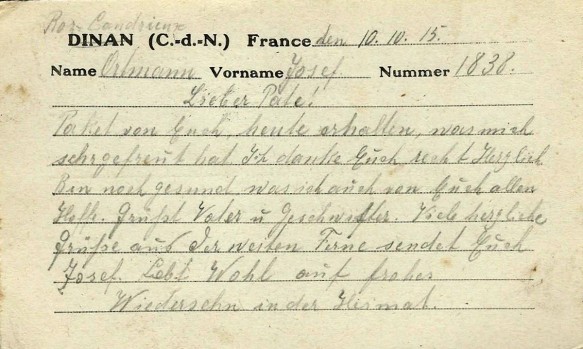 DINAN (C.-d.-N.) France den 10.10.15.
Name Ortmann Vorname Josef Nummer 1838.
Lieber Pate!
Paket von Euch, heute erhalten, was mich
sehr gefreut hat Ich danke Euch recht Herzlich
Bin noch gesund was ich auch von Euch allen
Hoffe. Grüßt Vater u Geschwister. Viele herzliche
Grüße aus der weiten Ferne sendet Euch
Josef. Lebt Wohl auf frohes
Wiedersehn in der Heimat.